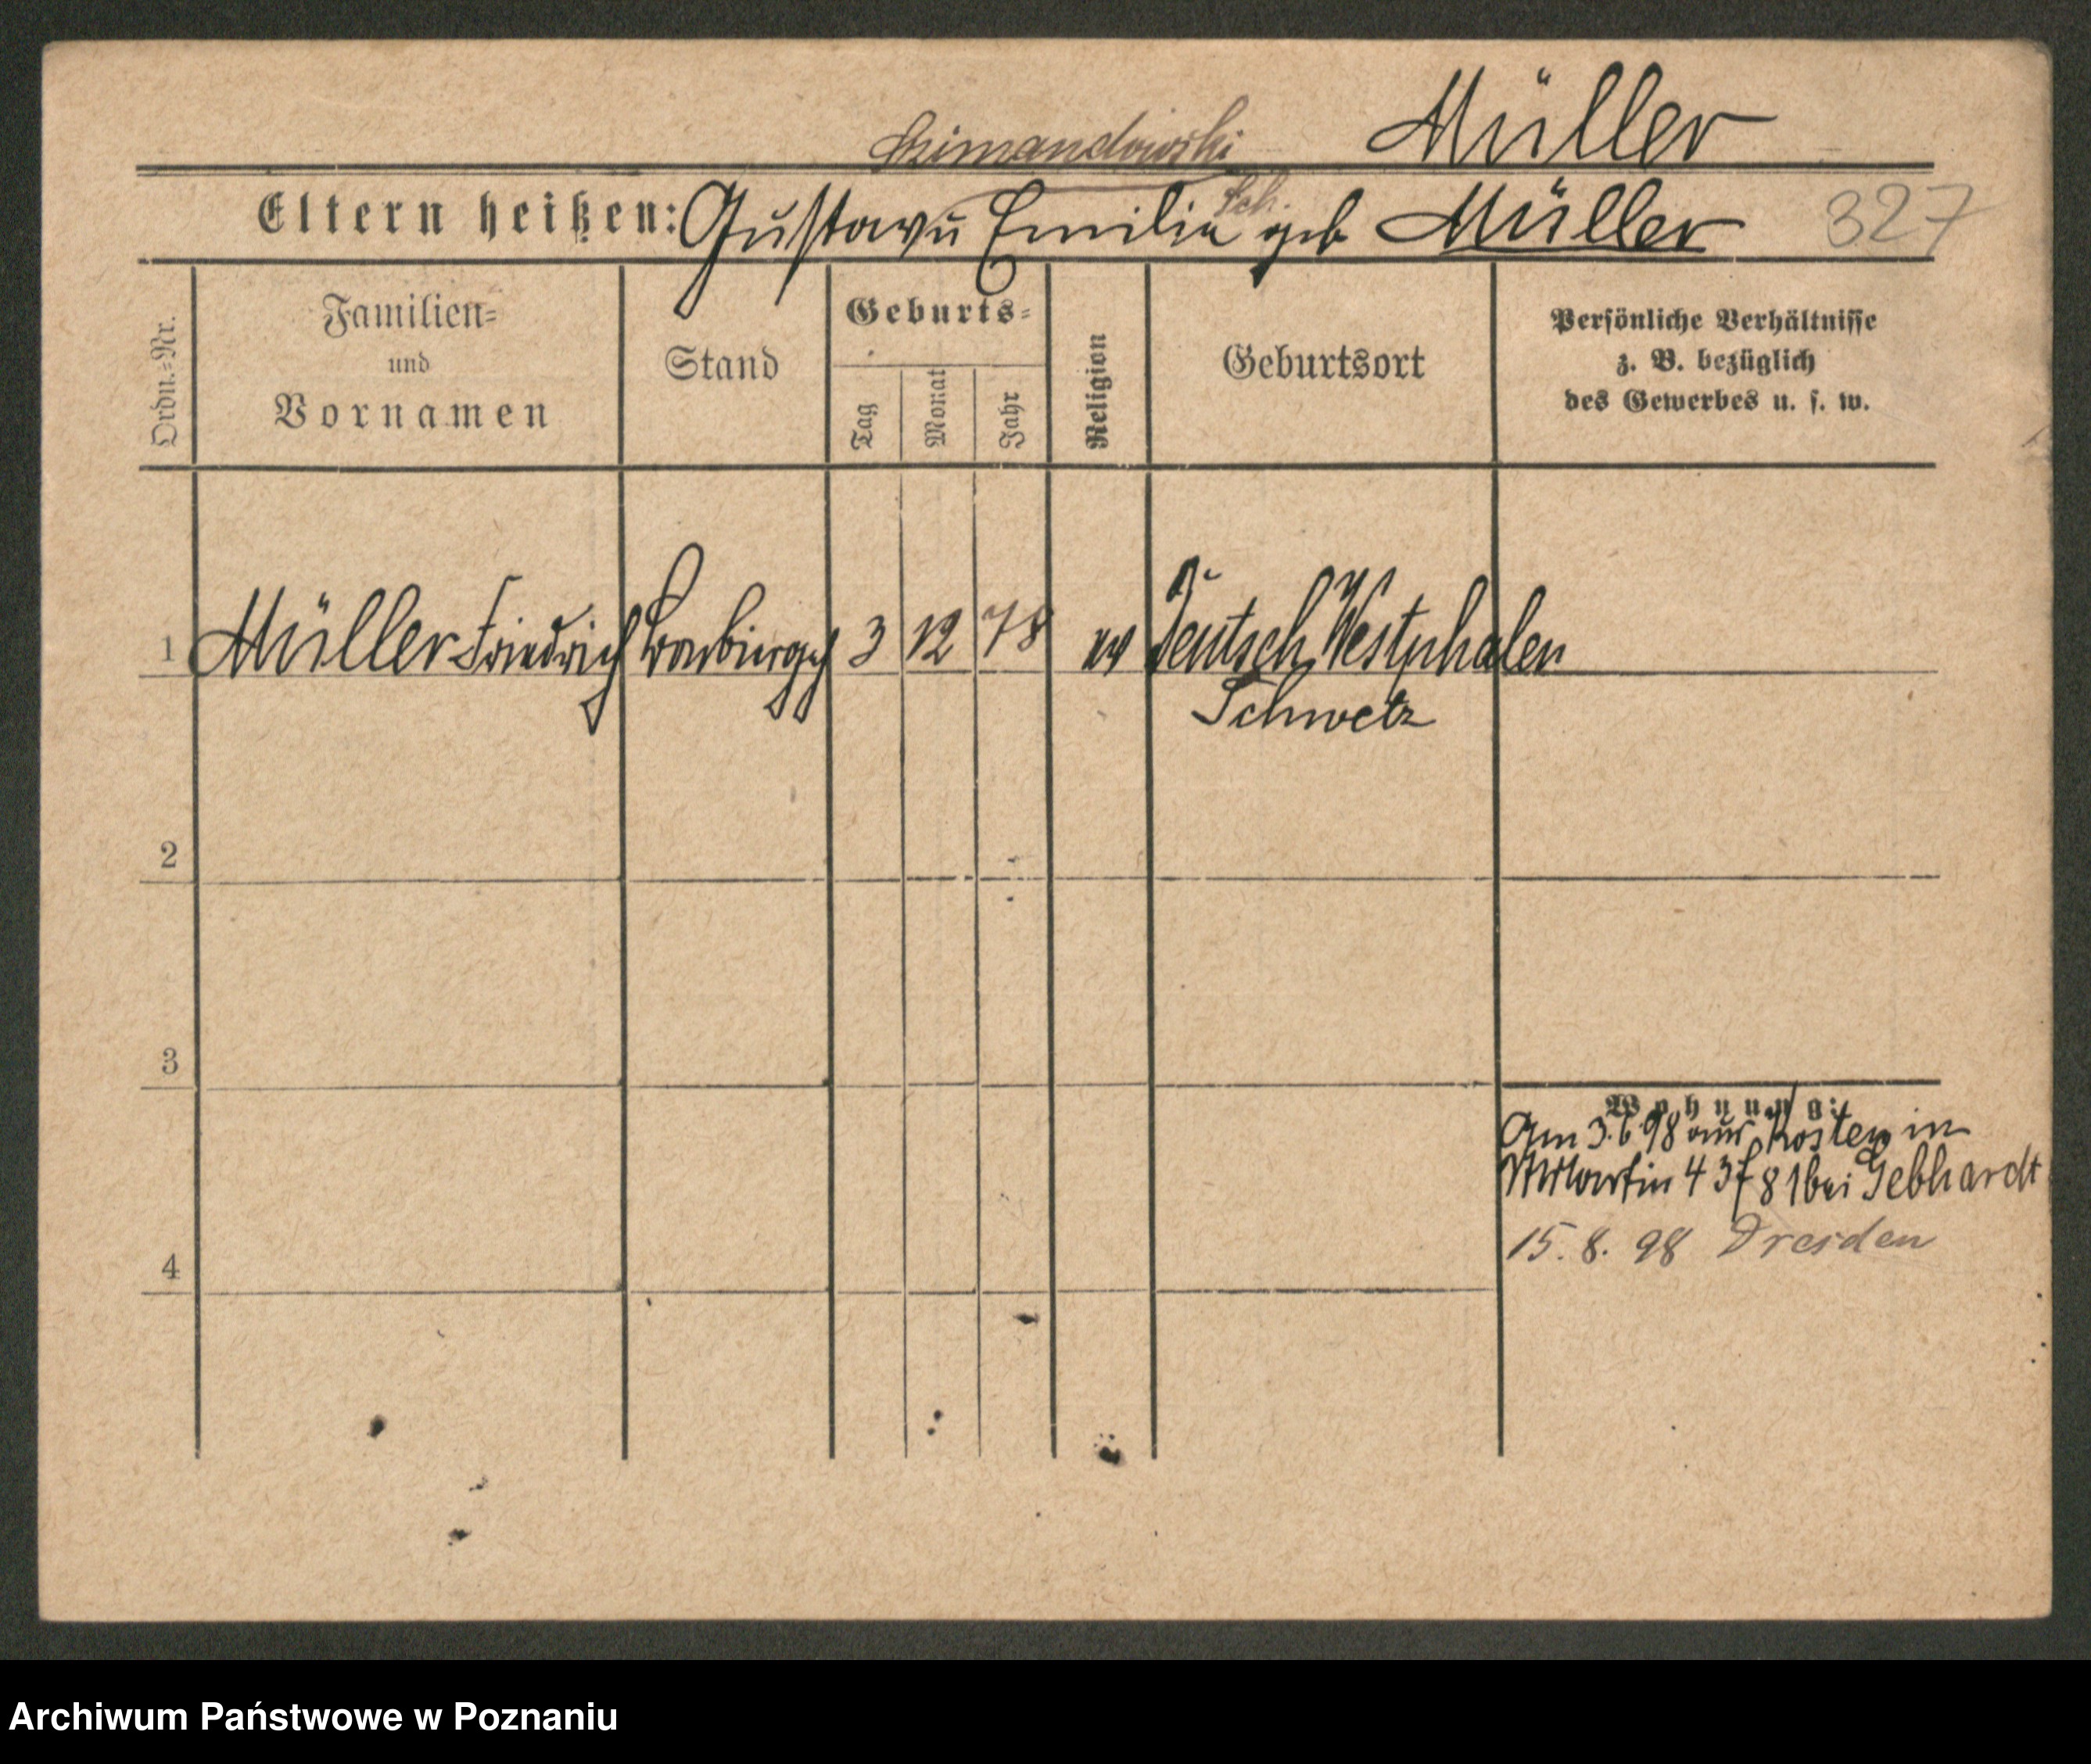 Müller
Szimandowski
Eltern heißen: Gustav u Emilie geb Müller 327
Sch.
Ordn.-Nr.
Familien-
und
Vornamen
Stand
Geburts-
Tag
Monat
Jahr
Religion
Geburtsort
Persönliche Verhältnisse
z. B. bezüglich
des Gewerbes u. s. w.
1 Müller Friedrich 3 12 78 ev Deutsch Westphalen
Schwetz
2
3
Wohnung:
Am 3.6.98 aus Kosten in
St Martin 43 81 bei Gebhardt
15. 8. 98 Dresden
4
Archiwum Państwowe w Poznaniu